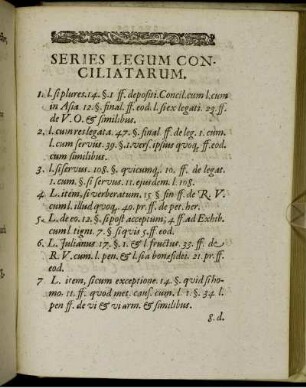 SERIES LEGUM CON-
CILIATARUM.
1. l. si plures. 14. §. 1 ff. depositi. Concil. cum l. cum
in Asia 12. §. final. ff. eod. l. si ex legati. 23. ff.
de V. O. & similibus.
2. l. cum res legata. 47. §. final. ff. de leg. 1. cum
l. cum servus. 39. §. 1. vers. ipsius quoq; ff. eod.
cum similibus.
3. l. si servus. 108. §. quicumq;. 10. ff. de legat.
1. cum. §. si servus. 11. ejusdem. l. 108.
4. L. item, si verberatum. 15 §. fin ff. de R. V.
cum l. illud quoq;. 40. pr. ff. de per. her.
5. L. de eo. 12. §. si post acceptum; 4 ff. ad Exhib.
cum l. tigni. 7. §. si quis 5. ff. eod.
6. L. Julianus 17. §. 1. & l fructus. 33. ff. de
R. V. cum l. pen. & l. si a bonæ fidei. 21. pr. ff.
eod.
7 L. item, si cum exceptione. 14. §. quid si ho-
mo. 11. ff. quod met. caus. cum l. 1. §. 34. l.
pen ff. de vi & vi arm. & similibus.
8. d.